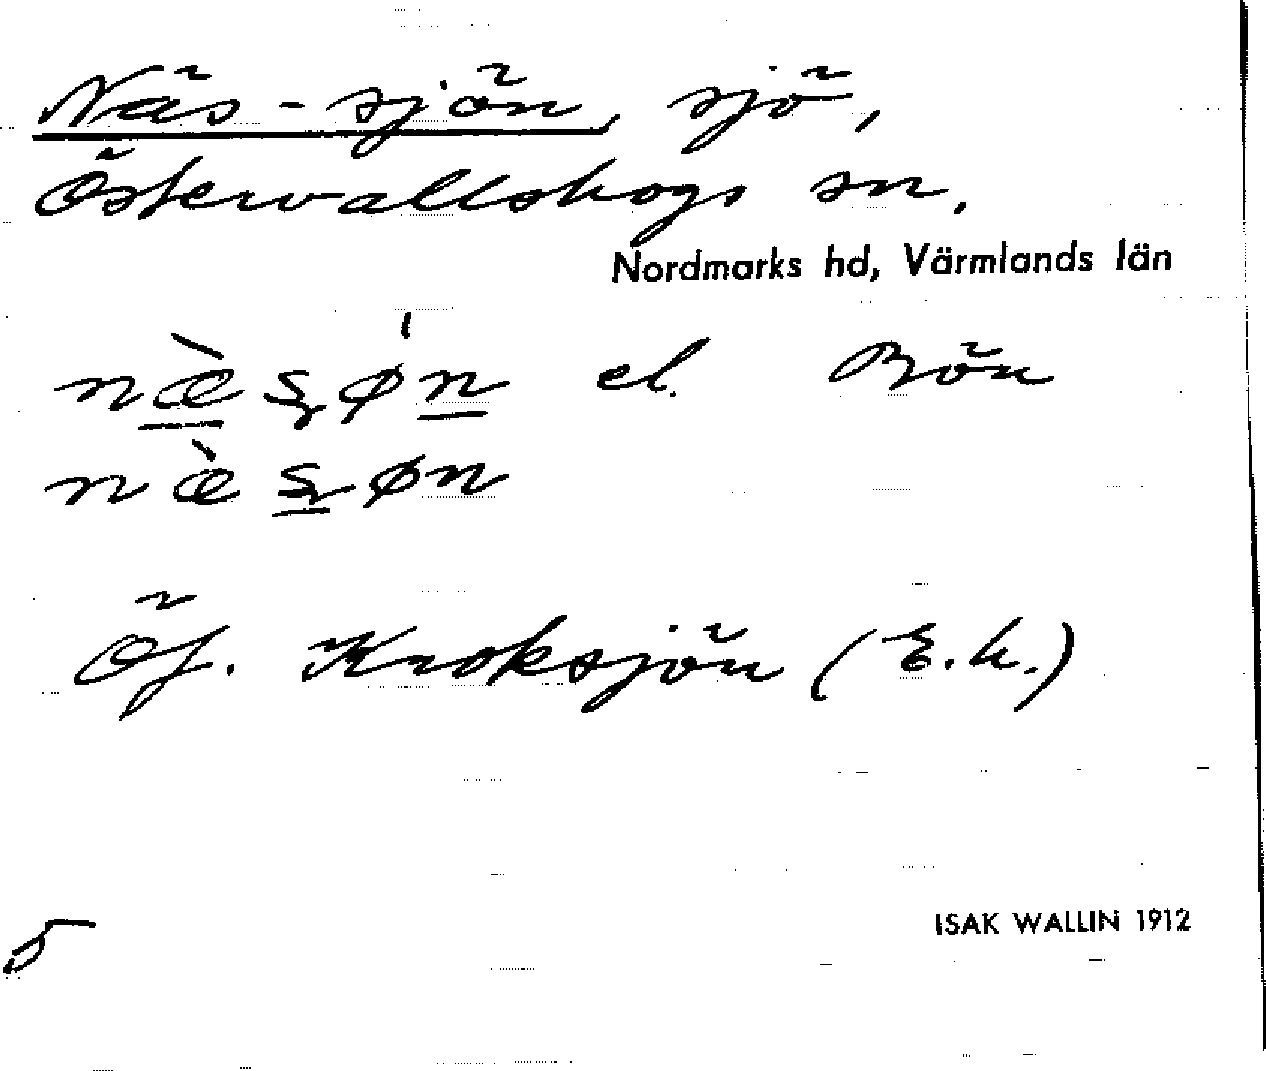 Näs-sjön, sjö,
Östervallskogs sn.
Nordmarks hd, Värmlands län
næ̀ʂøn el. Bön
næ̀ʂøn
Öf. Kroksjön (E.k.)
5
ISAK WALLIN 1912